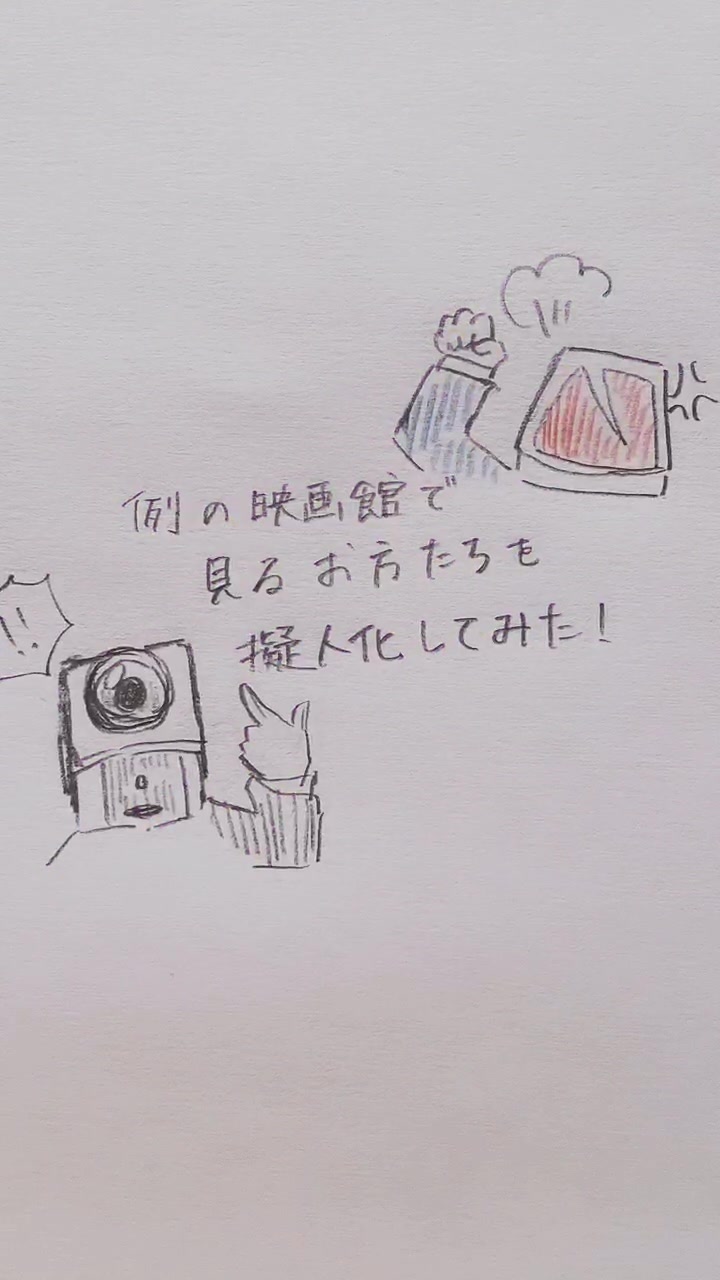 例の映画館で
見るお方たちを
擬人化してみた！
!!